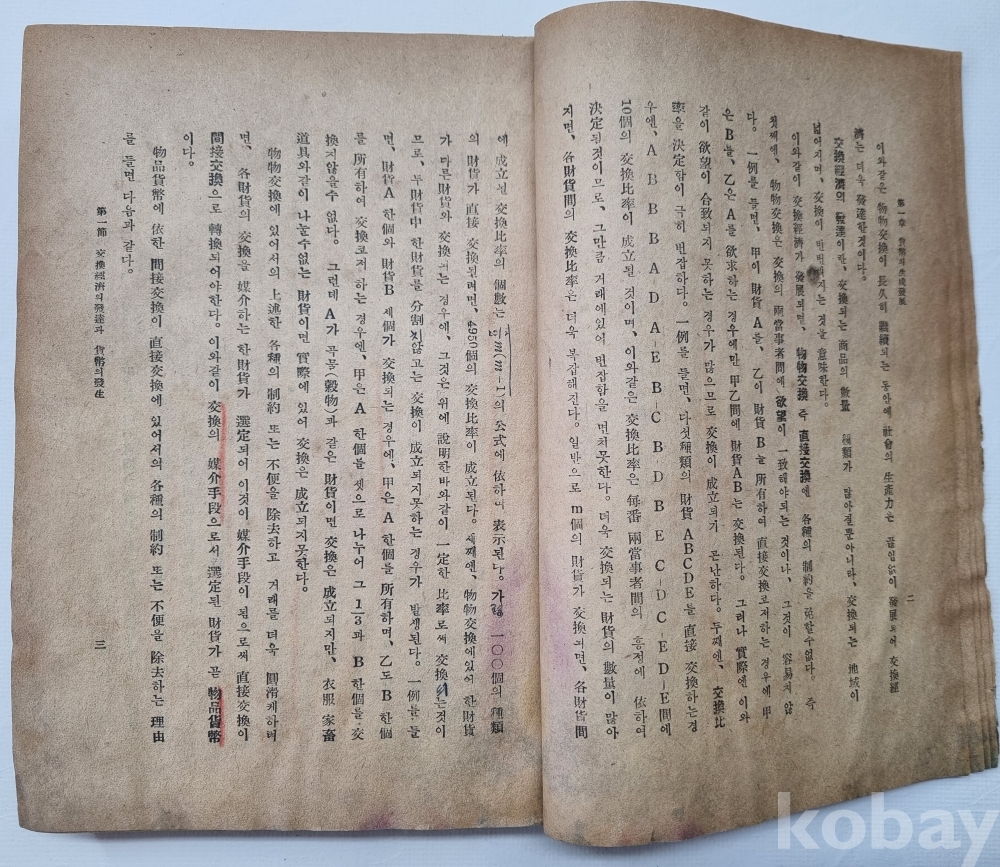 第一章 貨幣의生成發展
二
이와같은 物物交換이 長久히 繼續되는 동안에 社會의 生產力은 끊임없이 發展되어 交換經
濟는 더욱 發達한것이다.
交換經濟의 發達이란, 交換되는 商品의 數量 種類가 많아질뿐아니라, 交換되는 地域이
넓어지며, 交換이 빈번해지는 것을 意味한다.
이와같이 交換經濟가 發展되면, 物物交換 즉 直接交換에 各種의 制約을 免할수없다. 즉
첫째에, 物物交換은 交換의 兩當事者間에 欲望이 一致해야되는 것이나, 그것이 容易치 않
다. 一例를 들면, 甲이 財貨A를, 乙이 財貨B를 所有하여 直接交換코저하는 경우에 甲
은B를, 乙은A를 欲求하는 경우에만 甲乙間에 財貨AB는 交換된다. 그러나 實際엔 이와
같이 欲望이 合致되지 못하는 경우가 많으므로 交換이 成立되기 곤난하다. 두째엔, 交換比
率을 決定함이 극히 번잡하다. 一例를 들면, 다섯種類의 財貨 ABCDE를 直接 交換하는경
우엔, A—B B—A—D A—E B—C B—D B—E C—D C—E D—E間에
10個의 交換比率이 成立될 것이며, 이와같은 交換比率은 每番 兩當事者間의 흥정에 依하여
決定될것이므로, 그만큼 거래에있어 번잡함을 면치못한다. 더욱 交換되는 財貨의 數量이 많아
지면, 各財貨間의 交換比率은 더욱 복잡해진다. 일반으로 m個의 財貨가 交換되면, 各財貨間
에 成立된 交換比率의 個數는 m(m−1)의 公式에 依하여 表示된다. 가령 一〇〇個의 種類
의 財貨가 直接 交換된다면, 4950個의 交換比率이 成立된다. 세째엔, 物物交換에있어 한財貨
가 다른財貨와 交換되는 경우에, 그것은 위에 說明한바와같이 一定한 比率로써 交換되는것이
므로, 두財貨中 한財貨를 分割치않고는 交換이 成立되지못하는 경우가 발생된다. 一例를 들
면, 財貨A 한個와 財貨B 세個가 交換되는 경우에, 甲은A 한個를 所有하며, 乙도B 한個
를 所有하여 交換코저하는 경우엔, 甲은A 한個를 셋으로 나누어 그 1/3과 B 한個를 交
換치않을수 없다. 그런데 A가 곡물(穀物)과 같은 財貨이면 交換은 成立되지만, 衣服 家畜
道具와같이 나눌수없는 財貨이면 實際에 있어 交換은 成立되지못한다.
物物交換에 있어서의 上述한 各種의 制約 또는 不便을 除去하고 거래를 더욱 圓滑케하려
면, 各財貨의 交換을 媒介하는 한財貨가 選定되어 이것이 媒介手段이 됨으로써 直接交換이
間接交換으로 轉換되어야한다. 이와같이 交換의 媒介手段으로서 選定된 財貨가 곧 物品貨幣
이다.
物品貨幣에 依한 間接交換이 直接交換에 있어서의 各種의 制約 또는 不便을 除去하는 理由
를 들면 다음과 같다.
第一節 交換經濟의發達과 貨幣의發生
三
kobay